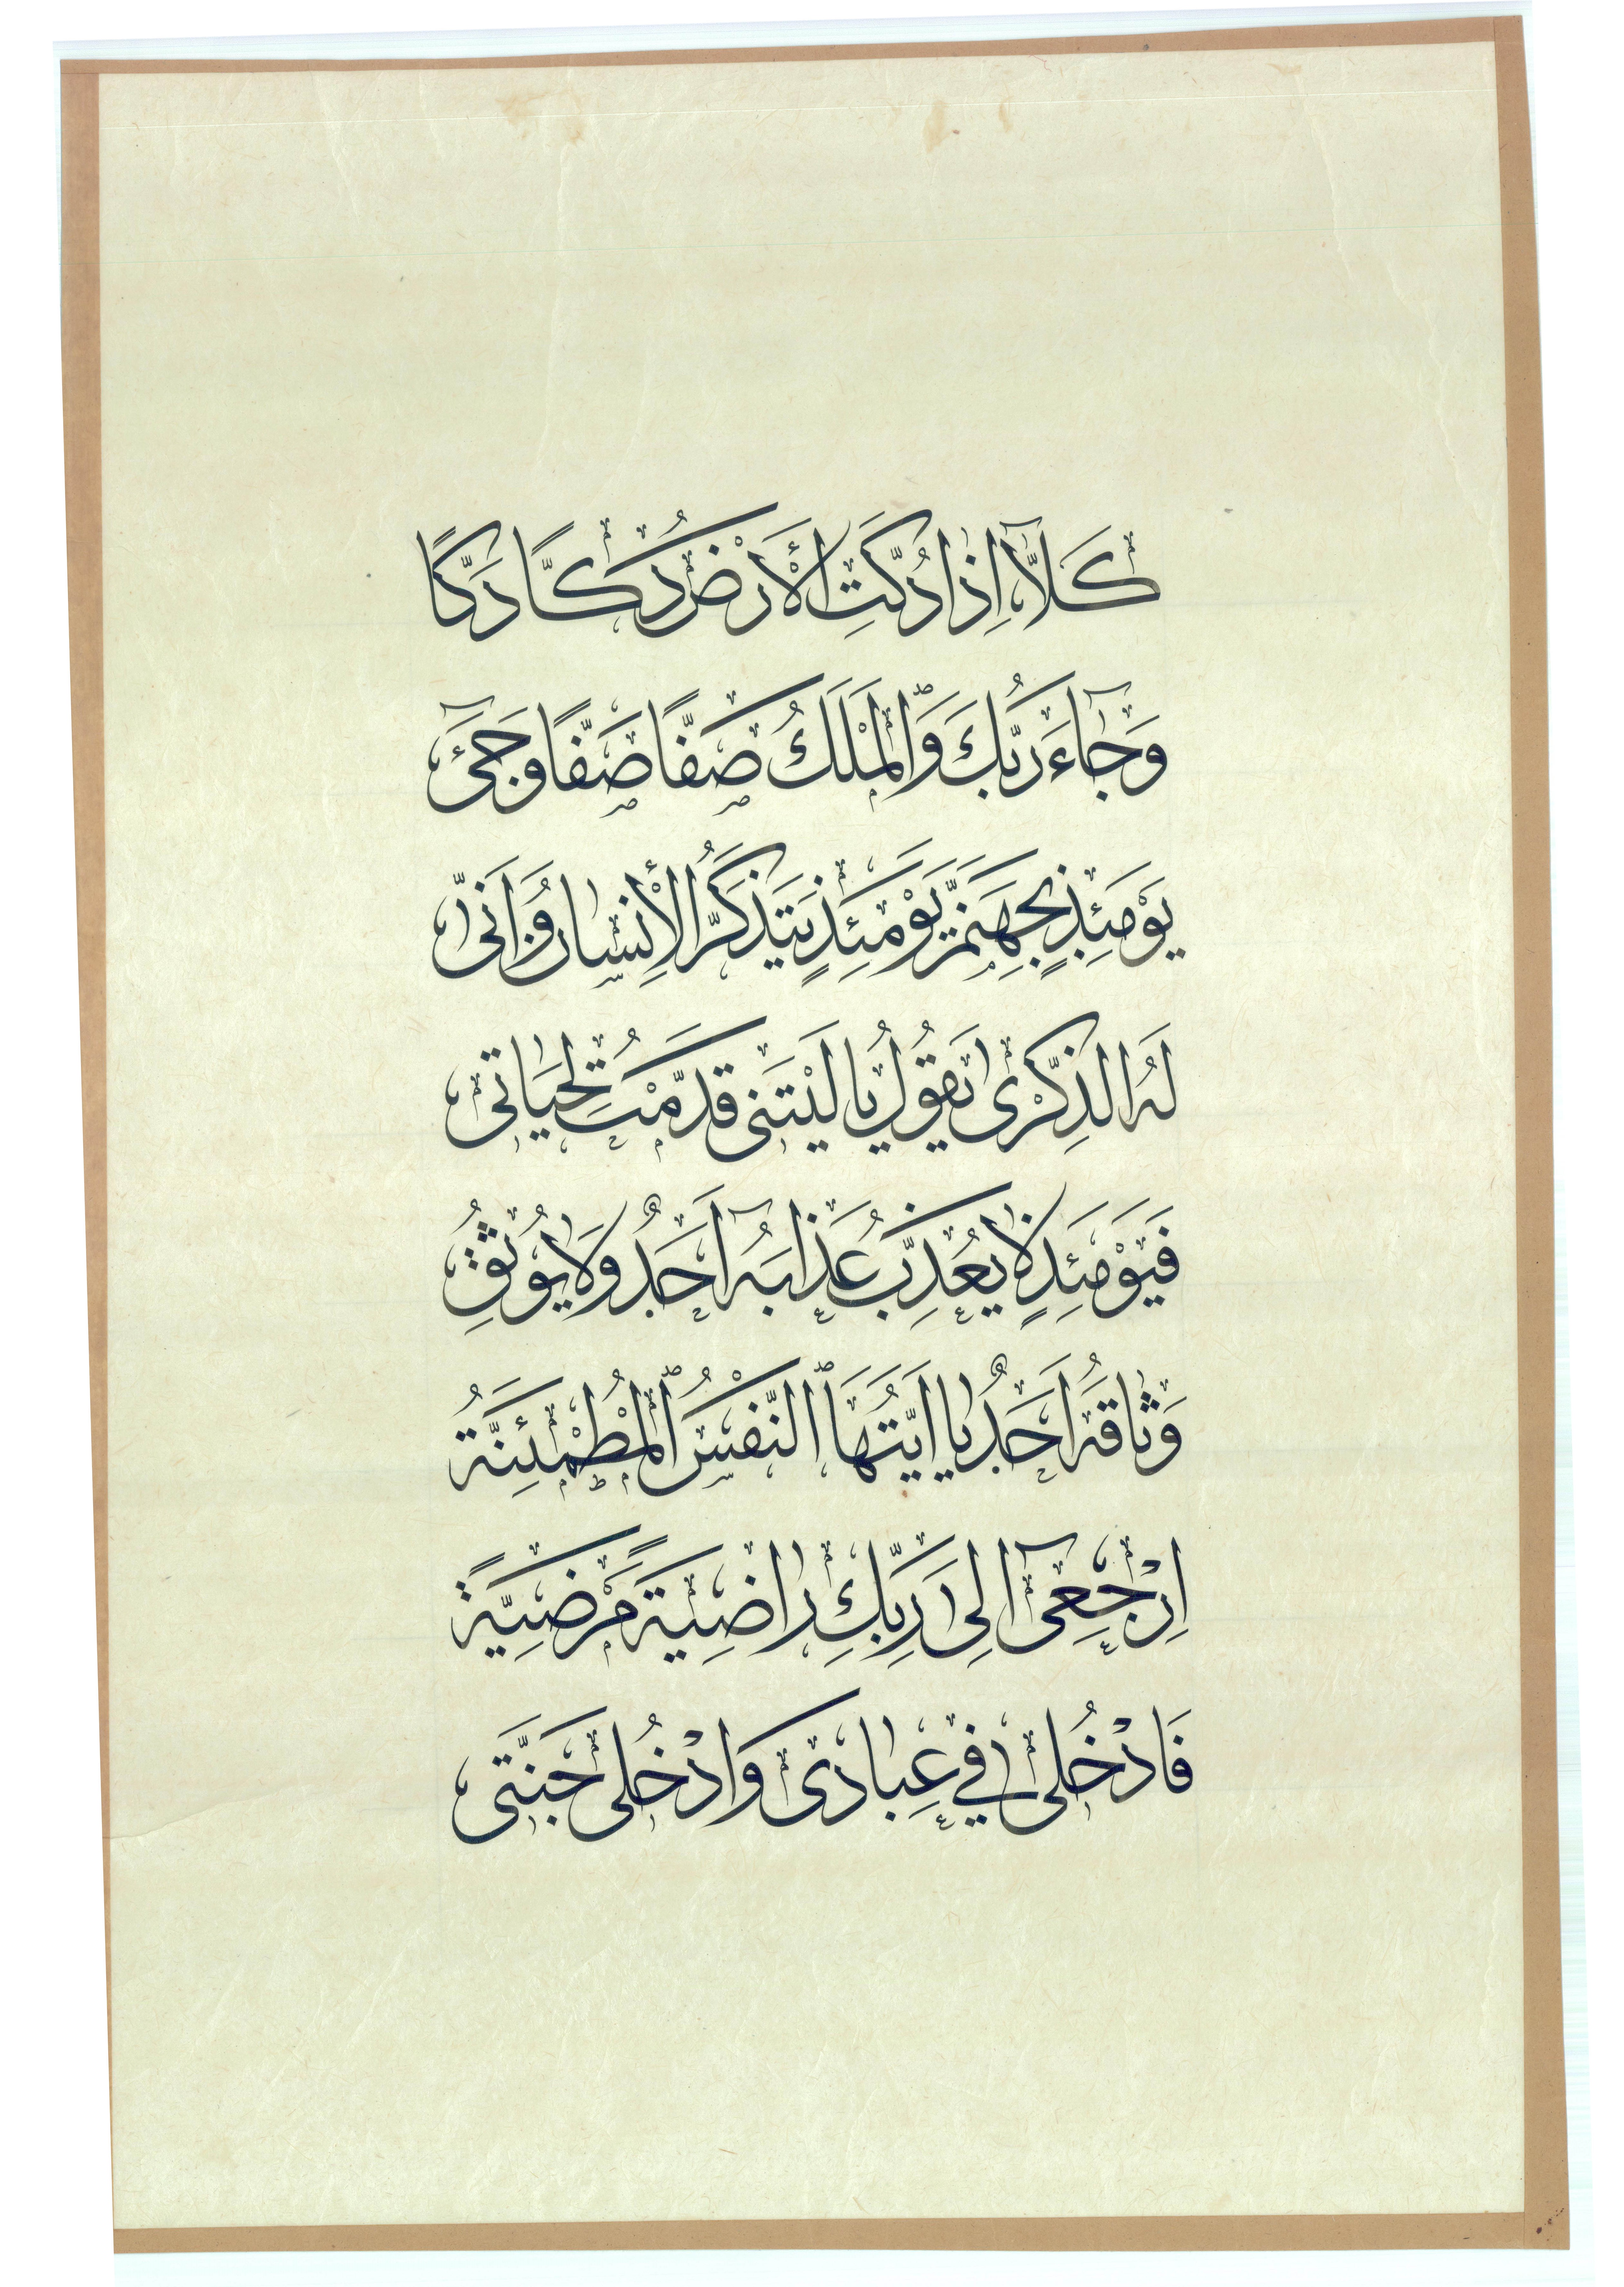 كَلَّآ اِذَا دُكَّتِ الْأَرْضُ دَكًّا دَكًّا
وَجَآءَ رَبُّكَ وَالْمَلَكُ صَفًّا صَفًّا وَجِىٓءَ
يَوْمَئِذٍ بِجَهَنَّمَ يَوْمَئِذٍ يَتَذَكَّرُ الْأِنْسَانُ وَاَنّٰى
لَهُ الذِّكْرٰى يَقُولُ يَا لَيْتَنِى قَدَّمْتُ لِحَيَاتِى
فَيَوْمَئِذٍ لَا يُعَذِّبُ عَذَابَهُٓ اَحَدٌ وَلَا يُوثِقُ
وَثَاقَهُٓ اَحَدٌ يَا اَيَّتُهَا النَّفْسُ الْمُطْمَئِنَّةُ
اِرْجِعِىٓ اِلٰى رَبِّكِ رَاضِيَةً مَرْضِيَّةً
فَادْخُلِى فِي عِبَادِى وَادْخُلِى جَنَّتِى